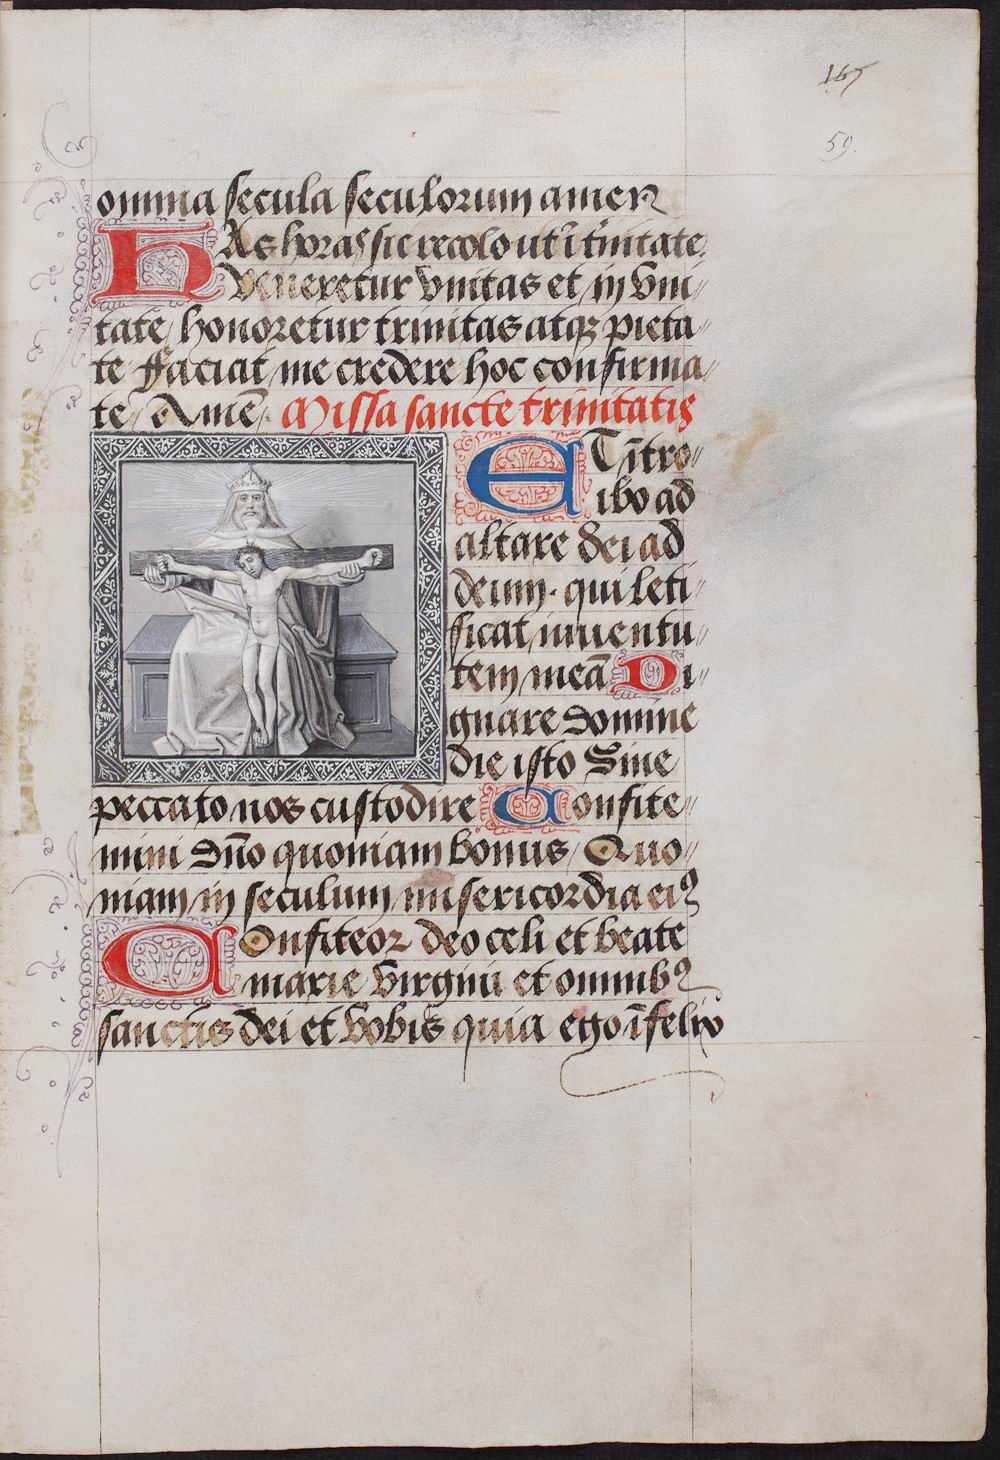 165
59.
omnia secula seculorum amen
HAs horas sic recolo ut ī t̄nitate
Veneretur vnitas et in vni〃
tate honoretur trinitas atqꝫ pieta〃
te Faciat me credere hoc confirma〃
te Amē. Missa sancte trinitatis
ET ītro〃
ibo ad
altare dei ad
deum. qui leti〃
ficat iuuentu〃
tem meā Di〃
gnare domine
die isto Sine
peccato nos custodire Confite〃
mini dn̄o quoniam bonus/ Quo〃
niam in seculum misericordia eiꝰ
COnfiteor deo celi et beate
marie virgini et omnibꝰ
sanctis dei et vobis quia ego īfelix